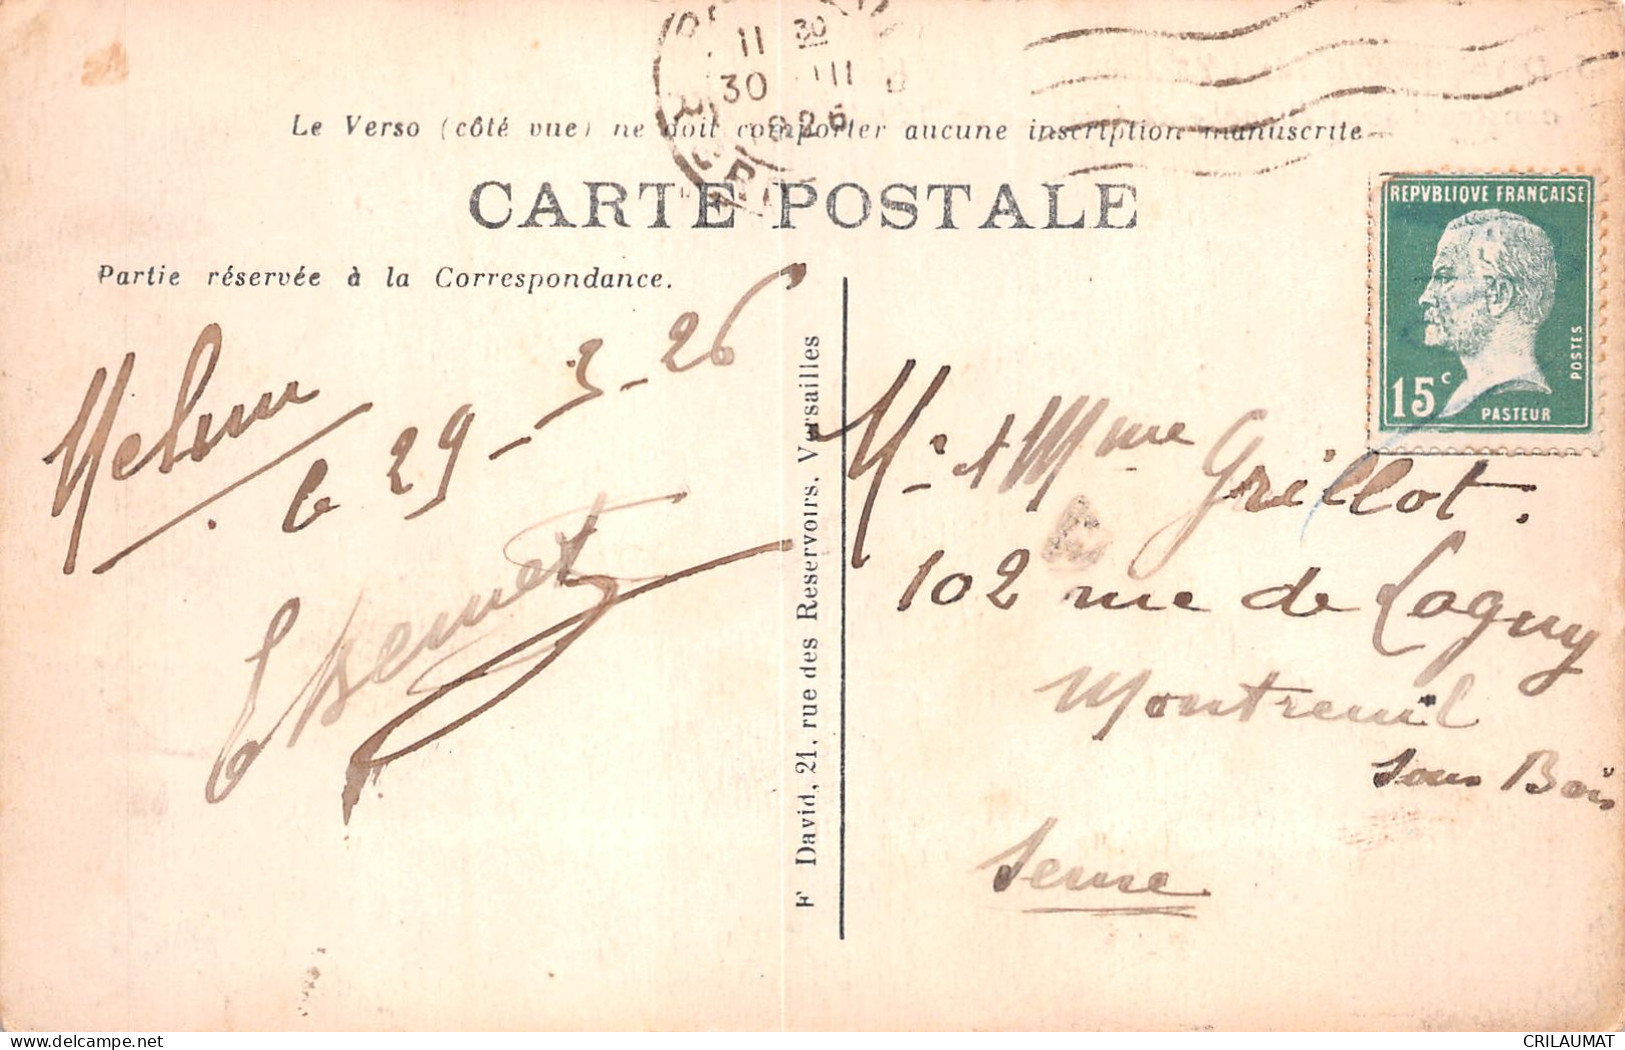 11 30
30 III
926
Le Verso (côté vue) ne doit comporter aucune inscription manuscrite
CARTE POSTALE
REPVBLIQVE FRANÇAISE
POSTES
15c
PASTEUR
Partie réservée à la Correspondance.
Melun
le 29-3-26
F David, 21, rue des Reservoirs, Versailles
Mr & Mme Grillot.
102 rue de Lagny
Montreuil
sous Bois
Seine
delcampe.net
CRILAUMAT